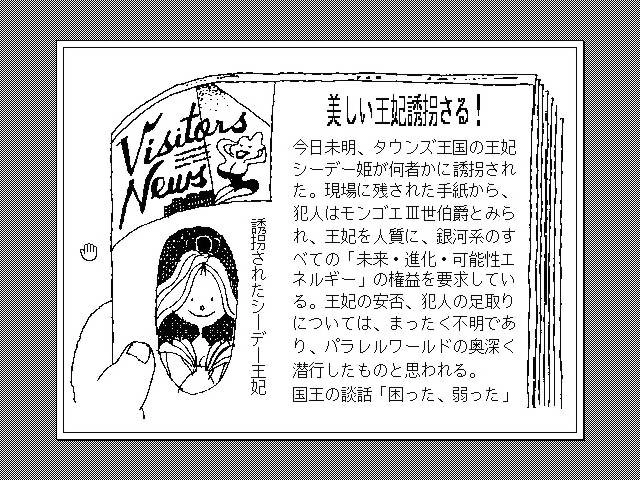 Visitors
News
誘拐されたシーデー王妃
美しい王妃誘拐さる！
今日未明、タウンズ王国の王妃
シーデー姫が何者かに誘拐され
た。現場に残された手紙から、
犯人はモンゴエⅢ世伯爵とみら
れ、王妃を人質に、銀河系のす
べての「未来・進化・可能性エ
ネルギー」の権益を要求してい
る。王妃の安否、犯人の足取り
については、まったく不明であ
り、パラレルワールドの奥深く
潜行したものと思われる。
国王の談話「困った、弱った」